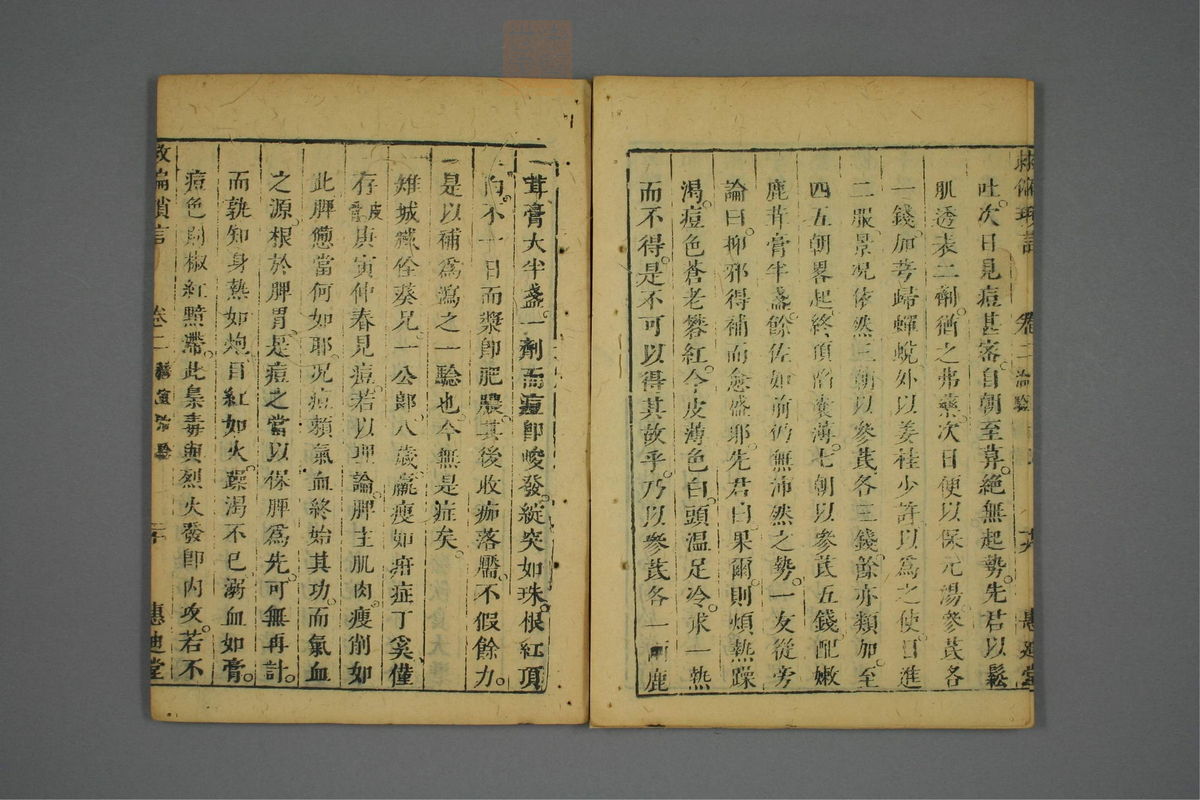 吐。次日見痘甚密。自朝至暮。絶無起勢。先君以鬆
肌透表二劑。猶之弗藥。次日便以保元湯。參芪各
一錢。加芎歸蟬蛻。外以姜桂少許。以爲之使。日進
二服。景况依然。三朝以參芪各三錢。餘亦類加。至
四五朝畧起。終頂陷囊薄。七朝以參芪五錢。配嫩
鹿茸膏半盞。餘佐如前。仍無沛然之勢。一友從旁
論曰。抑邪得補而愈盛耶。先君曰。果爾。則煩熱躁
渴。痘色蒼老礬紅。今皮薄色白。頭溫足冷。求一熱
而不得。是不可以得其故乎。乃以參芪各一兩。鹿
茸膏大半盞。一劑而痘卽峻發。綻突如珠。根紅頂
白。不一日而漿卽肥膿。其後收痂落靨。不假餘力。
是以補爲瀉之一驗也。今無是症矣。
雉城臧佺葵兄一公郎。八歲。羸瘦如疳症丁奚。僅
存皮骨。庚寅仲春見痘。若以理論。脾主肌肉。瘦削如
此。脾憊當何如耶。况痘賴氣血終始其功。而氣血
之源。根於脾胃。是痘之當以保脾爲先。可無再計。
而孰知身熱如炮。目紅如火。躁渴不已。溺血如膏。
痘色則椒紅黯滯。此梟毒與烈火發卽內攻。若不
救偏瑣言 卷二 二十 惠迪堂